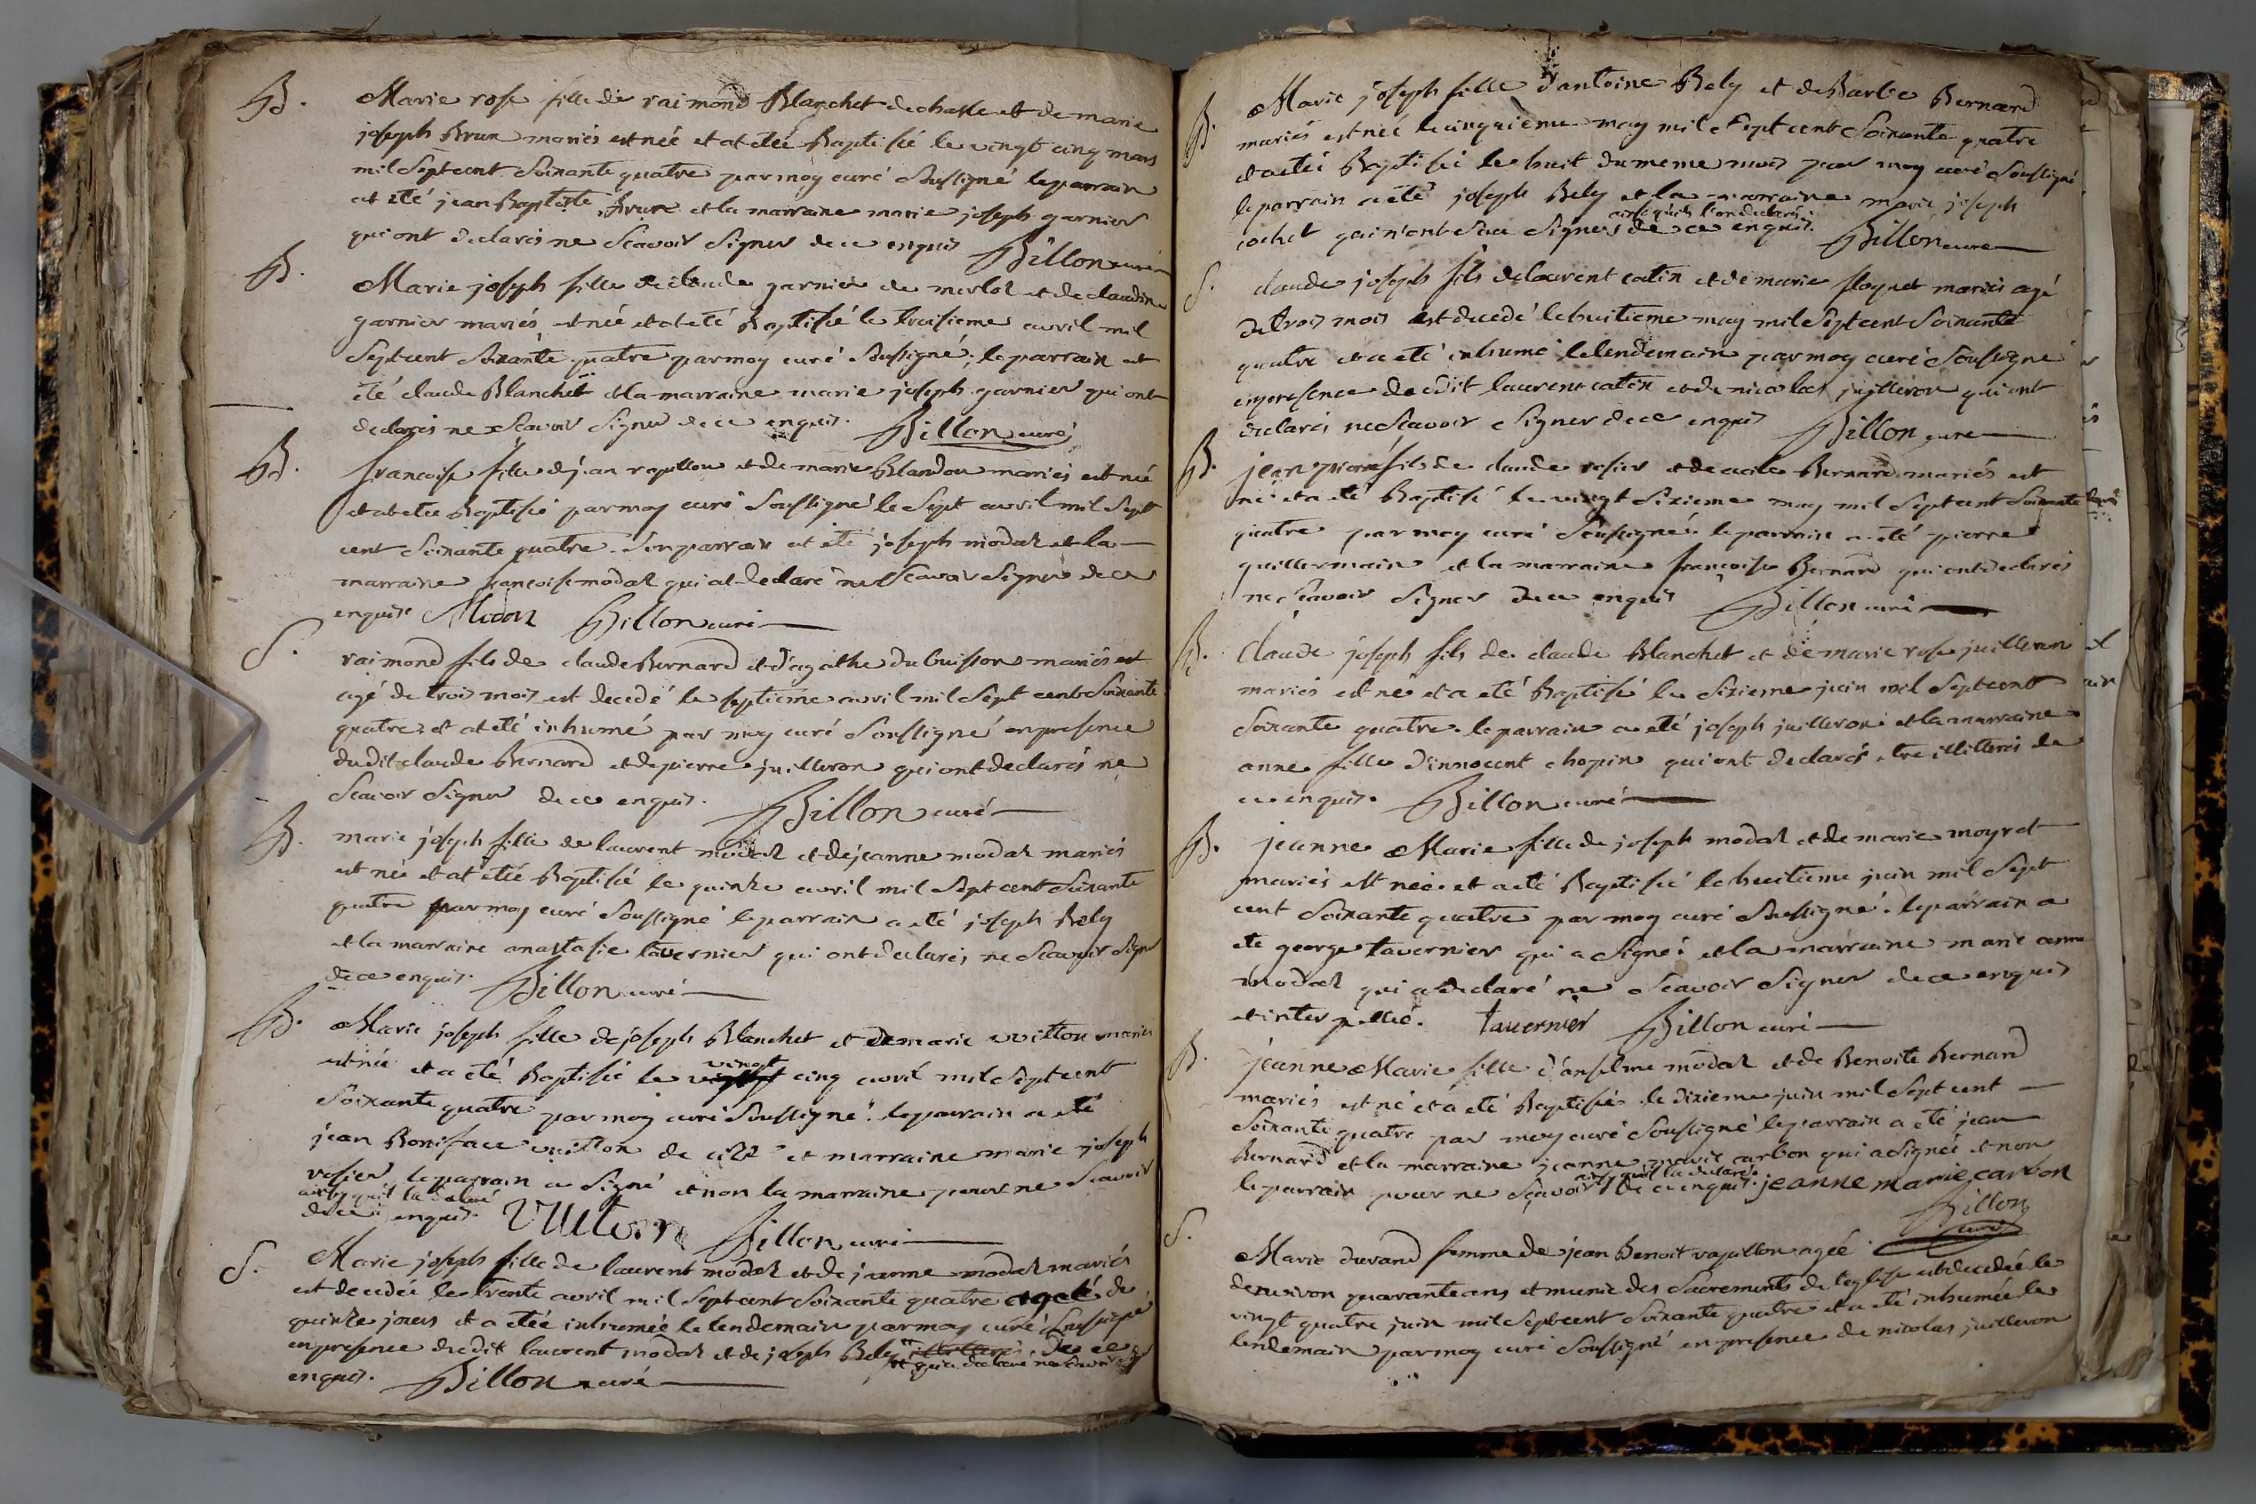 B. Marie rose fille de raimond Blanchet de chatte et de marie
joseph Brun mariés est née et at etée Baptisée le vingt cinq mars
mil Sept cent Soixante quatre par moy curé Soussigné le parrain
at été jean Baptiste Brun et la marraine marie joseph garnier
qui ont declarés ne Scavoir Signer de ce enquis Billon curé
B. Marie joseph fille de claude garnier de et de claudine
garnier mariés est née et at eté Baptisée le troisieme avril mil
Sept cent Soixante quatre par moy curé Soussigné, le parrain at
été claude Blanchet et la marraine marie joseph garnier qui ont
declarés ne Scavoir Signer de ce enquis. Billon curé
B. francoise fille de jean et de marie Blandon mariés est née
et at etée Baptisée par moy curé Soussigné le Sept avril mil Sept
cent Soixante quatre. Son parrain at été joseph modaz et la
marraine francoise modaz qui at declaré ne Scavoir Signer de ce
enquis. Modaz Billon curé
S. raimond fils de claude Bernard et d'agathe du buisson mariés est
agé de trois mois est decedé le septieme avril mil Sept cent Soixante
quatre et at eté inhumé par moy curé Soussigné en presence
du dit claude Bernard et de pierre juilleron qui ont declarés ne
Scavoir Signer de ce enquis. Billon curé
B. marie joseph fille de laurent modaz et de jeanne modaz mariés
est née et at etée Baptisée le quinze avril mil Sept cent Soixante
quatre par moy curé Soussigné le parrain a eté joseph Bely
et la marraine anastasie tavernier qui ont declarés ne Scavoir Signer
de ce enquis. Billon curé
B. Marie joseph fille de joseph Blanchet et de marie vuitton mariés
est née et a eté Baptisée le vingt cinq avril mil Sept cent
Soixante quatre par moy curé Soussigné. le parrain a eté
jean Boniface vuitton de et marraine marie joseph
rosier, le parrain a Signé et non la marraine pour ne Scavoir
ainsy qu'il la declaré
de ce enquis. Vuitton Billon curé
S. Marie joseph fille de laurent modaz et de jeanne modaz mariés
est decedée le trente avril mil Sept cent Soixante quatre ageé de
quinze jours et a etée inhumée le lendemain par moy curé Soussigné
en presence du dit laurent modaz et de joseph Bely de ce
et qui a declaré ne Scavoir
enquis. Billon curé
B. Marie joseph fille d'antoine Bely et de Barbe Bernard
mariés est née le cinquieme may mil Sept cent Soixante quatre
et a eté Baptisée le huit du meme mois par moy curé Soussigné
le parrain a été joseph Bely et la marraine marie joseph
ainsy qu'ils l'on declarés
cochet qui n'ont Sçu Signer de ce enquis. Billon curé
S. claude joseph fils de laurent catin et de marie mariés agé
de trois mois est decedé le huitieme may mil Sept cent Soixante
quatre et a eté inhumé le lendemain par moy curé Soussigné
en presence de dit laurent catin et de nicolas juilleron qui ont
declarés ne Scavoir Signer de ce enquis Billon curé
B. jean pierre fils de claude rosier et de Bernard mariés est
né et a eté Baptisé le vingt Sixieme may mil Sept cent Soixante
quatre par moy curé Soussigné le parrain a eté pierre
guillermain et la marraine françoise Bernard qui ont declarés
ne Scavoir Signer de ce enquis Billon curé
B. Claude joseph fils de claude Blanchet et de marie rose juilleron
mariés est né et a eté Baptisé le Sixieme juin mil Sept cent
Soixante quatre. le parrain a eté joseph juilleron et la marraine
anne fille d'innocent chopin qui ont declarés etre illitterés de
ce enquis. Billon curé
B. jeanne Marie fille de joseph modaz et de marie moyret
mariés est née et a eté Baptisée le huitieme juin mil Sept
cent Soixante quatre par moy curé Soussigné. le parrain a
eté george tavernier qui a Signé: et la marraine marie anne
modaz qui a declaré ne Scavoir Signer de ce enquis
et interpellé. tavernier Billon curé
B. jeanne Marie fille d'anselme modaz et de Benoite Bernard
mariés est né et a eté Baptisée le dixieme juin mil Sept cent
Soixante quatre par moy curé Soussigné le parrain a eté jean
Bernard et la marraine jeanne marie carbon qui a Signée et non
ainsy qu'il la declaré
le parrain pour ne Scavoir de ce enquis. jeanne marie carbon
Billon
curé
S. Marie durand femme de jean Benoit agée
d'environ quarante ans et munie des Sacrements de l'eglise est decedée le
vingt quatre juin mil Sept cent Soixante quatre et a eté inhumée le
lendemain par moy curé Soussigné en presence de nicolas juilleron